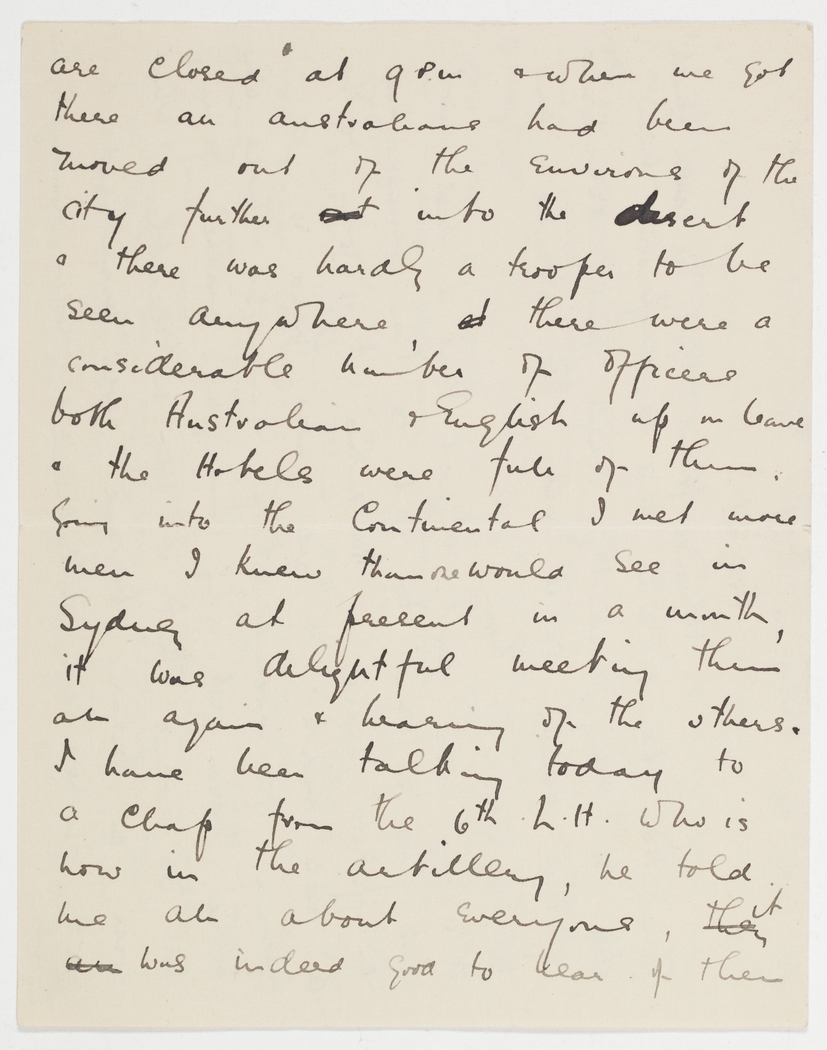 are closed at 9 P.m & when we got
there all australians had been
moved out of the environs of the
city further out into the desert
& there was hardly a trooper to be
seen anywhere, at there were a
considerable number of officers
both Australian & English up on leave
& the Hotels were full of them.
Going into the Continental I met more
men I knew than one would see in
Sydney at present in a month,
it was delightful meeting them
all again & hearing of the others.
I have been talking today to
a chap from the 6th L.H. who is
now in the artillery, he told
me all about everyone, they it
all was indeed good to hear of them